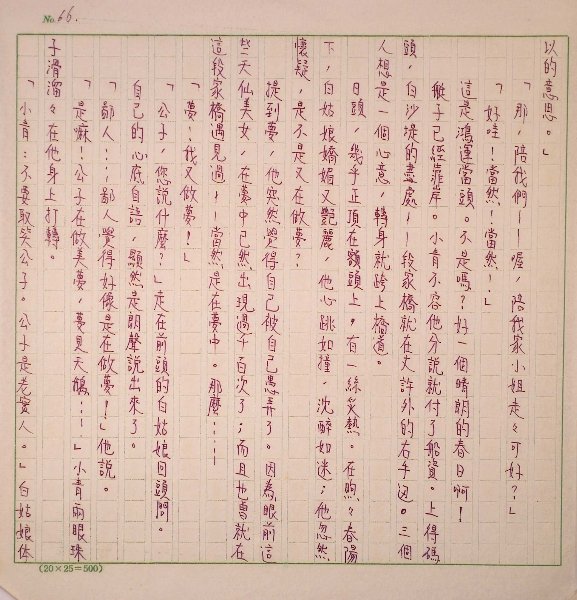 No. 66.
以的意思。」
「那，陪我們——喔，陪我家小姐走々可好？」
「好哇！當然！當然！」
這是鴻運當頭。不是嗎？好一個晴朗的春日啊！
艇子已經靠岸。小青不容他分說就付了船資。上得碼
頭，白沙堤的盡處——段家橋就在丈許外的右手邊。三個
人想是一個心意，轉身就跨上橋道。
日頭，幾乎正頂在額頭上，有一絲炙熱。在煦々春陽
下，白姑娘嬌媚又艷麗，他心跳如撞，沈醉如迷；他忽然
懷疑，是不是又在做夢？
提到夢，他突然覺得自己被自己愚弄了。因為眼前這
些天仙美女，在夢中已然出現過千百次了；而且也曾就在
這段家橋遇見過——當然是在夢中。那麼……
「夢！我又做夢！」
「公子，您說什麼？」走在前頭的白姑娘回頭問。
自己的心底自語，顯然是朗聲說出來了。
「鄙人……鄙人覺得好像是在做夢！」他說。
「是嘛！公子在做美夢，夢見天鵝……」小青兩眼珠
子滑溜々在他身上打轉。
「小青：不要取笑公子。公子是老實人。」白姑娘体
(20×25=500)